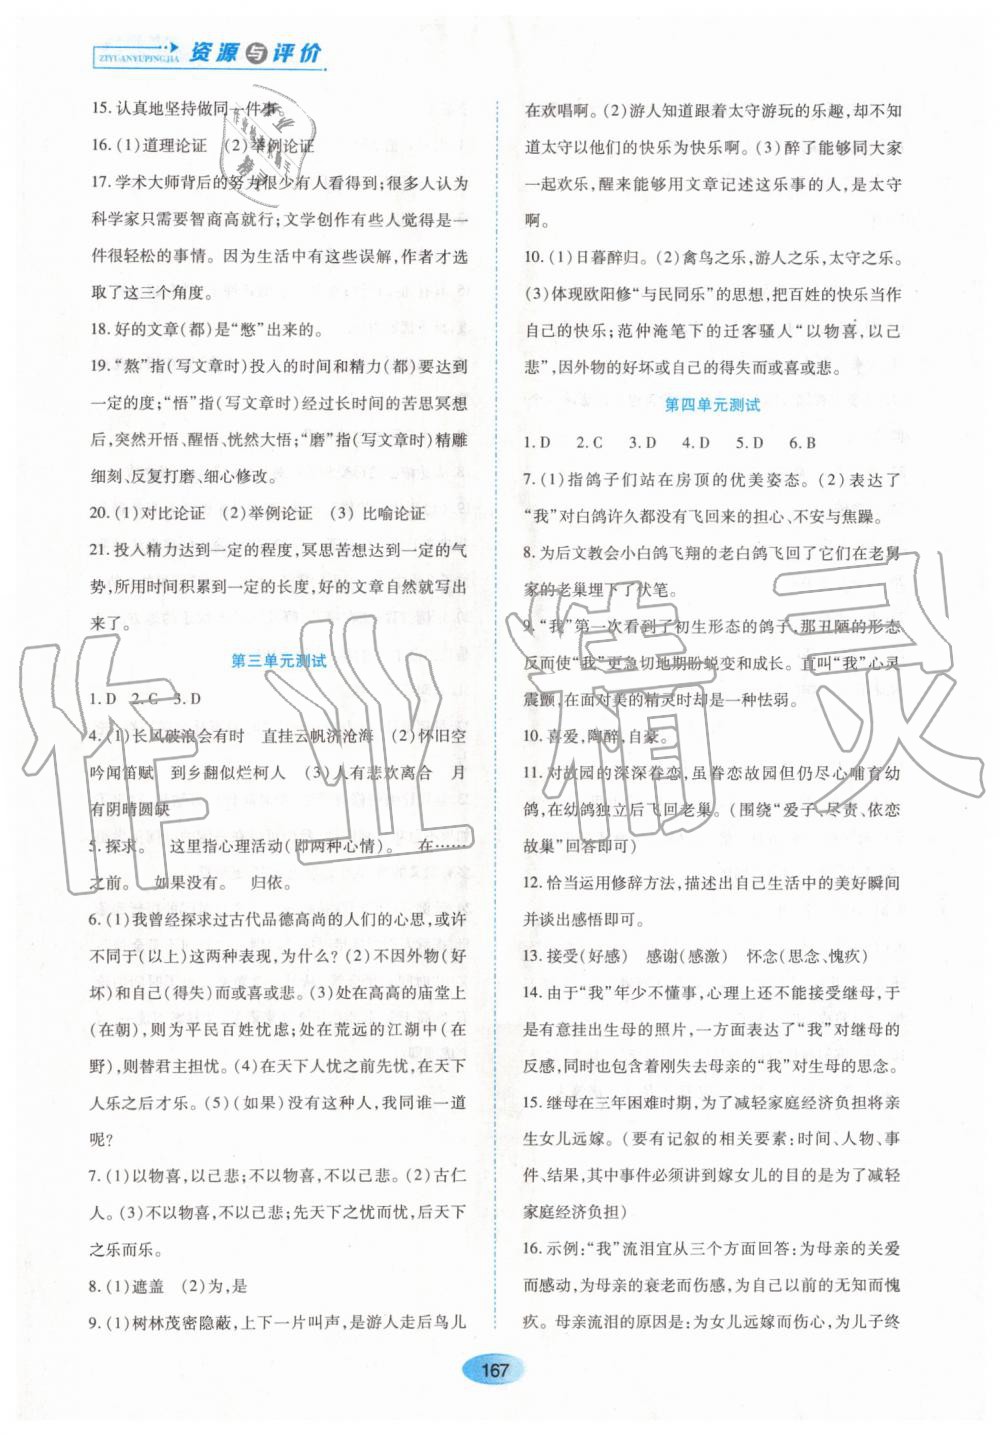 资源与评价
ZIYUANYUPINGJIA
15.认真地坚持做同一件事
16.(1)道理论证 (2)举例论证
17.学术大师背后的努力很少有人看得到;很多人认为
科学家只需要智商高就行;文学创作有些人觉得是一
件很轻松的事情。因为生活中有这些误解,作者才选
取了这三个角度。
18.好的文章(都)是“憋”出来的。
19.“熬”指(写文章时)投入的时间和精力(都)要达到
一定的度;“悟”指(写文章时)经过长时间的苦思冥想
后,突然开悟、醒悟、恍然大悟;“磨”指(写文章时)精雕
细刻、反复打磨、细心修改。
20.(1)对比论证 (2)举例论证 (3)比喻论证
21.投入精力达到一定的程度,冥思苦想达到一定的气
势,所用时间积累到一定的长度,好的文章自然就写出
来了。
第三单元测试
1.D 2.C 3.D
4.(1)长风破浪会有时 直挂云帆济沧海 (2)怀旧空
吟闻笛赋 到乡翻似烂柯人 (3)人有悲欢离合 月
有阴晴圆缺
5.探求。 这里指心理活动(即两种心情)。 在……
之前。 如果没有。 归依。
6.(1)我曾经探求过古代品德高尚的人们的心思,或许
不同于(以上)这两种表现,为什么?(2)不因外物(好
坏)和自己(得失)而或喜或悲。(3)处在高高的庙堂上
(在朝),则为平民百姓忧虑;处在荒远的江湖中(在
野),则替君主担忧。(4)在天下人忧之前先忧,在天下
人乐之后才乐。(5)(如果)没有这种人,我同谁一道
呢?
7.(1)以物喜,以己悲;不以物喜,不以己悲。(2)古仁
人。(3)不以物喜,不以己悲;先天下之忧而忧,后天下
之乐而乐。
8.(1)遮盖 (2)为,是
9.(1)树林茂密隐蔽,上下一片叫声,是游人走后鸟儿
在欢唱啊。(2)游人知道跟着太守游玩的乐趣,却不知
道太守以他们的快乐为快乐啊。(3)醉了能够同大家
一起欢乐,醒来能够用文章记述这乐事的人,是太守
啊。
10.(1)日暮醉归。(2)禽鸟之乐,游人之乐,太守之乐。
(3)体现欧阳修“与民同乐”的思想,把百姓的快乐当作
自己的快乐;范仲淹笔下的迁客骚人“以物喜,以己
悲”,因外物的好坏或自己的得失而或喜或悲。
第四单元测试
1.D 2.C 3.D 4.D 5.D 6.B
7.(1)指鸽子们站在房顶的优美姿态。(2)表达了
“我”对白鸽许久都没有飞回来的担心、不安与焦躁。
8.为后文教会小白鸽飞翔的老白鸽飞回了它们在老舅
家的老巢埋下了伏笔。
9.“我”第一次看到了初生形态的鸽子,那丑陋的形态
反而使“我”更急切地期盼蜕变和成长。直叫“我”心灵
震颤,在面对美的精灵时却是一种怯弱。
10.喜爱,陶醉,自豪。
11.对故园的深深眷恋,虽眷恋故园但仍尽心哺育幼
鸽,在幼鸽独立后飞回老巢。(围绕“爱子、尽责、依恋
故巢”回答即可)
12.恰当运用修辞方法,描述出自己生活中的美好瞬间
并谈出感悟即可。
13.接受(好感) 感谢(感激) 怀念(思念、愧疚)
14.由于“我”年少不懂事,心理上还不能接受继母,于
是有意挂出生母的照片,一方面表达了“我”对继母的
反感,同时也包含着刚失去母亲的“我”对生母的思念。
15.继母在三年困难时期,为了减轻家庭经济负担将亲
生女儿远嫁。(要有记叙的相关要素:时间、人物、事
件、结果,其中事件必须讲到嫁女儿的目的是为了减轻
家庭经济负担)
16.示例:“我”流泪宜从三个方面回答:为母亲的关爱
而感动,为母亲的衰老而伤感,为自己以前的无知而愧
疚。母亲流泪的原因是:为女儿远嫁而伤心,为儿子终
167
作业精灵